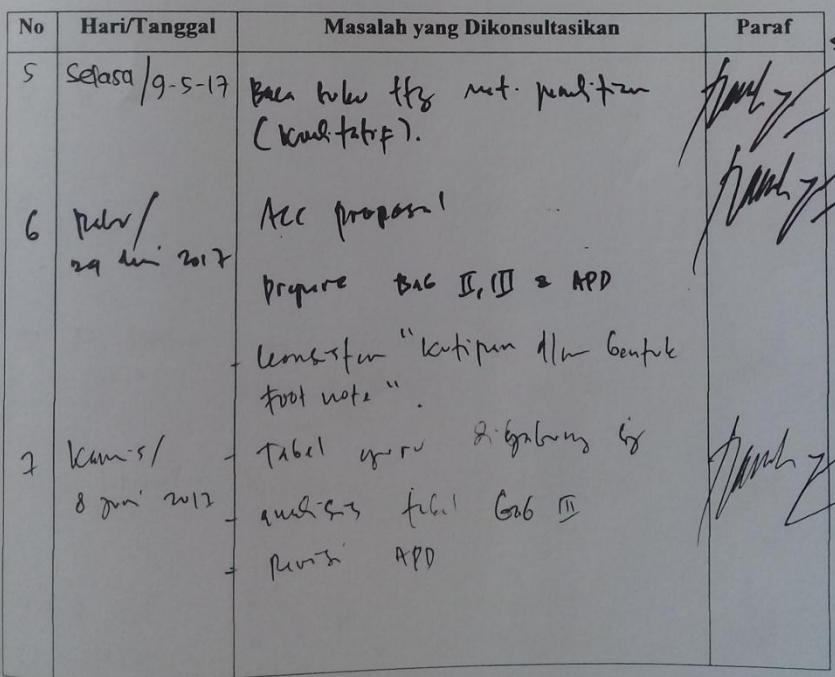 No Hari/Tanggal Masalah yang Dikonsultasikan Paraf
5 Selasa/9-5-17 Baca buku ttg met. penelitian
(kualitatif).
6 Rabu/ Acc proposal
29 2017
prepare BAB II, III & APD
- konsisten "kutipan dlm bentuk
foot note".
7 Kamis/ - Tabel guru digabung
8 juni 2017 - analisis tabel bab III
- Revisi APD